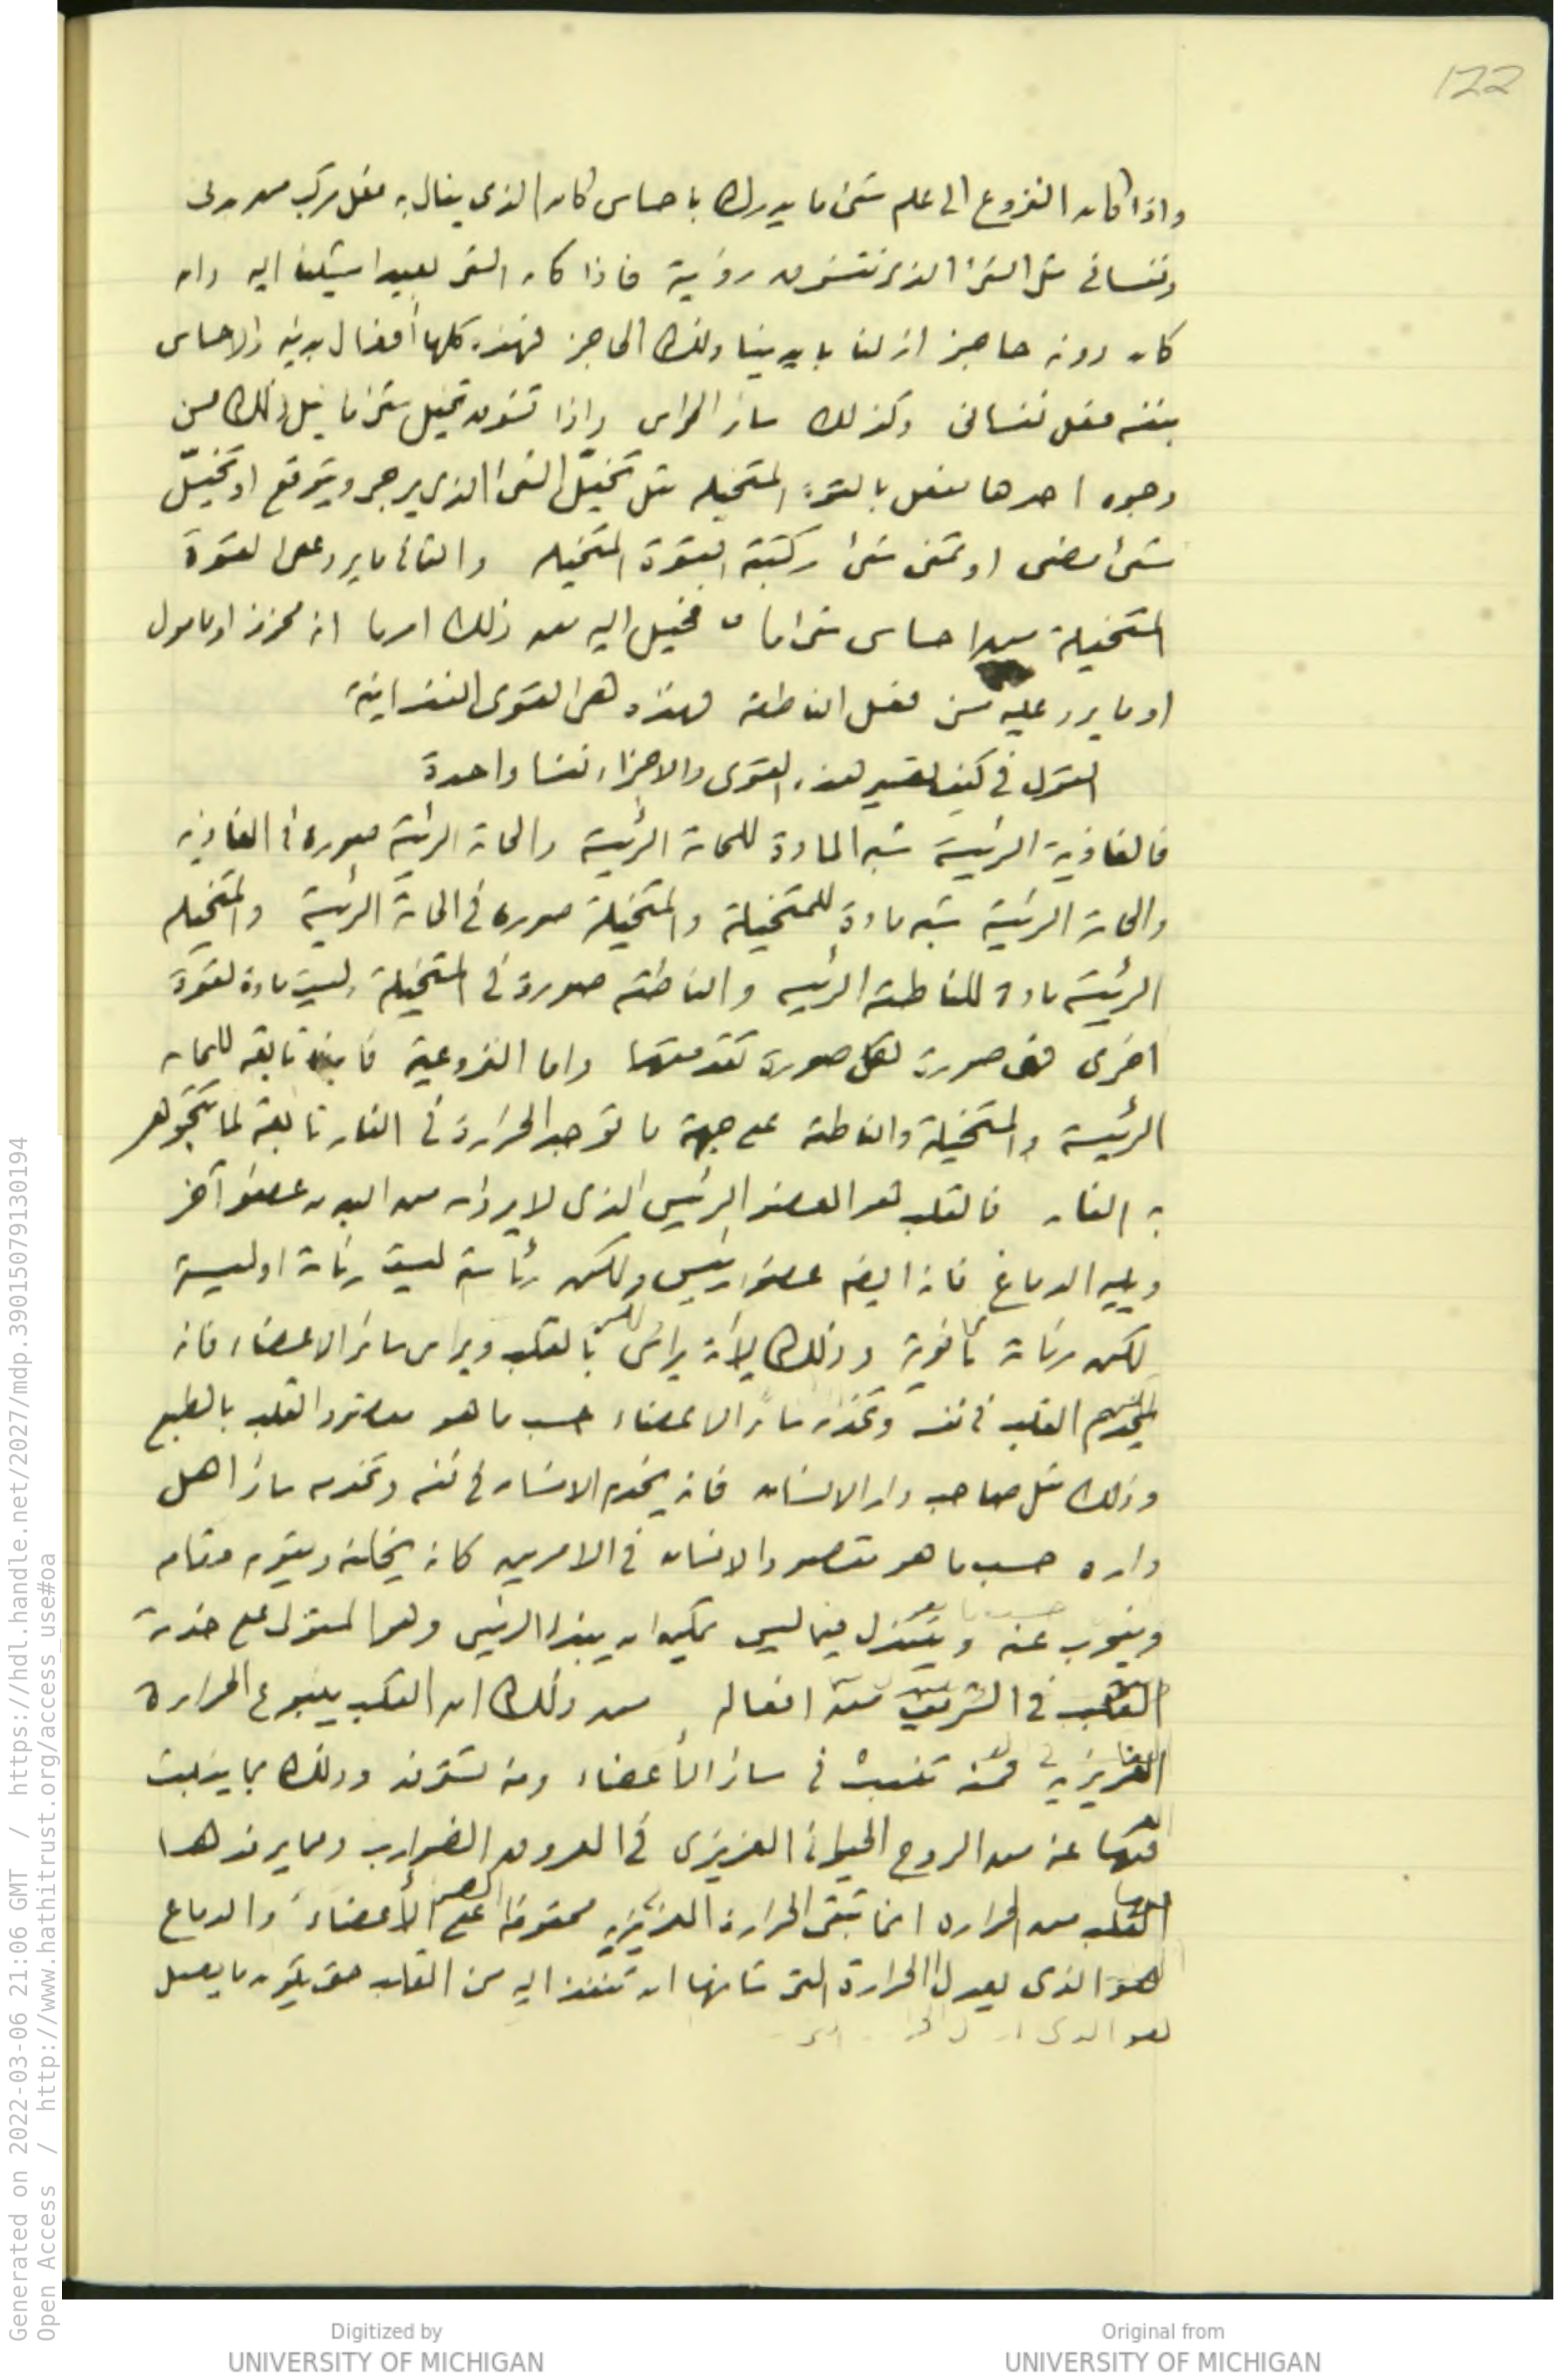 122
واذا كان النزوع الى علم شئ ما يدرك باحساس كان الذي ينال به فعل مركب من بدني
ونفساني مثل الشئ الذي نتشوق رؤية فاذا كان الشئ بعيدا مشينا اليه وان
كان دونه حاجز ازلنا بايدينا ذلك الحاجز فهذه كلها أفعال بدنية والاحساس
بنفسه فعل نفساني وكذلك سائر الحواس واذا تشوق تخيل شئ ما نيل ذلك من
وجوه احدها يفعل بالقوة المتخيله مثل تخيّل الشئ الذي يرجى ويتوقع او تخيّل
شئ مضى او تمنى شئ ركبته القوة المتخيله والثاني ما يرد على القوة
المتخيلة من احساس شئ ما فخيل اليه من ذلك امرما انه مخوف او مامول
او ما يرد عليه من فعل الناطقة فهذه هى القوى النفسانية
القول في كيف تصير هذه القوى والاجزاء نفسا واحدة
فالغاذية الرئيسة شبه المادة للحاسة الرئيسة والحاسة الرئيسة صورة في الغاذية
والحاسة الرئيسة شبه مادة للمتخيلة والمتخيلة صورة في الحاسة الرئيسة والمتخيله
الرئيسة مادة للناطقة الرئيسه والناطقه صورة في المتخيلة وليست مادة لقوة
اخرى فهى صورة لكل صورة تقدمتها واما النزوعية فانها تابعه للحاسه
الرئيسة والمتخيلة والناطقة على جهة ما توجد الحرارة في النار تابعة لما تتجوهر
به النار فالقلب هو العضو الرئيس الذى لا يرأسه من البدن عضو آخر
ويليه الدماغ فانه ايضا عضو رئيس ولكن رئاسة ليست رئاسة اولية
لكن رئاسة ثانوية وذلك لأنه يرأس بالقلب ويراس سائر الاعضاء فانه
يخدم القلب في نفسه وتخدمه سائر الاعضاء حسب ما هو مقصود القلب بالطبع
وذلك مثل صاحب دار الانسان فانه يخدم الانسان في نفسه وتخدمه سائر اهل
داره حسب ما هو مقصود الانسان في الامرين كانه يخلفه ويقوم مقامه
وينوب عنه ويتبدل فيما ليس يمكن ان يبدله الرئيس وهو المستولى على خدمة
القلب في الشريف من افعاله من ذلك ان القلب ينبوع الحرارة
الغريزيه فمنه تنبث في سائر الأعضاء ومنه تسترفد وذلك بما ينبث
فيها عنه من الروح الحيواني الغريزى في العروق الضوارب ومما يرفدها
القلب من الحراره انما تبقى الحرارة الغريزيه محفوظة على الأعضاء والدماغ
هو الذى يعدل الحرارة التى شانها ان تنفذ اليه من القلب حتى يكون ما يصل
هو الذى
Generated on 2022-03-06 21:06 GMT / https://hdl.handle.net/2027/mdp.39015079130194
Open Access / http://www.hathitrust.org/access_use#oa
Digitized by
UNIVERSITY OF MICHIGAN
Original from
UNIVERSITY OF MICHIGAN